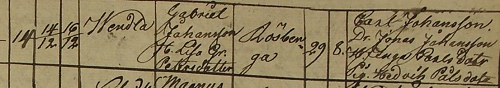 14 14/12 16/12 Wendla
Gabriel
Johansson
H. Lisa Gr.
Pettersdotter
Rösben-
ga
29 8.
Carl Johansson.
Dr. Jonas Johansson
H. Inga Pålsdotr
Pig. Hedvig Pålsdotr
Magnus